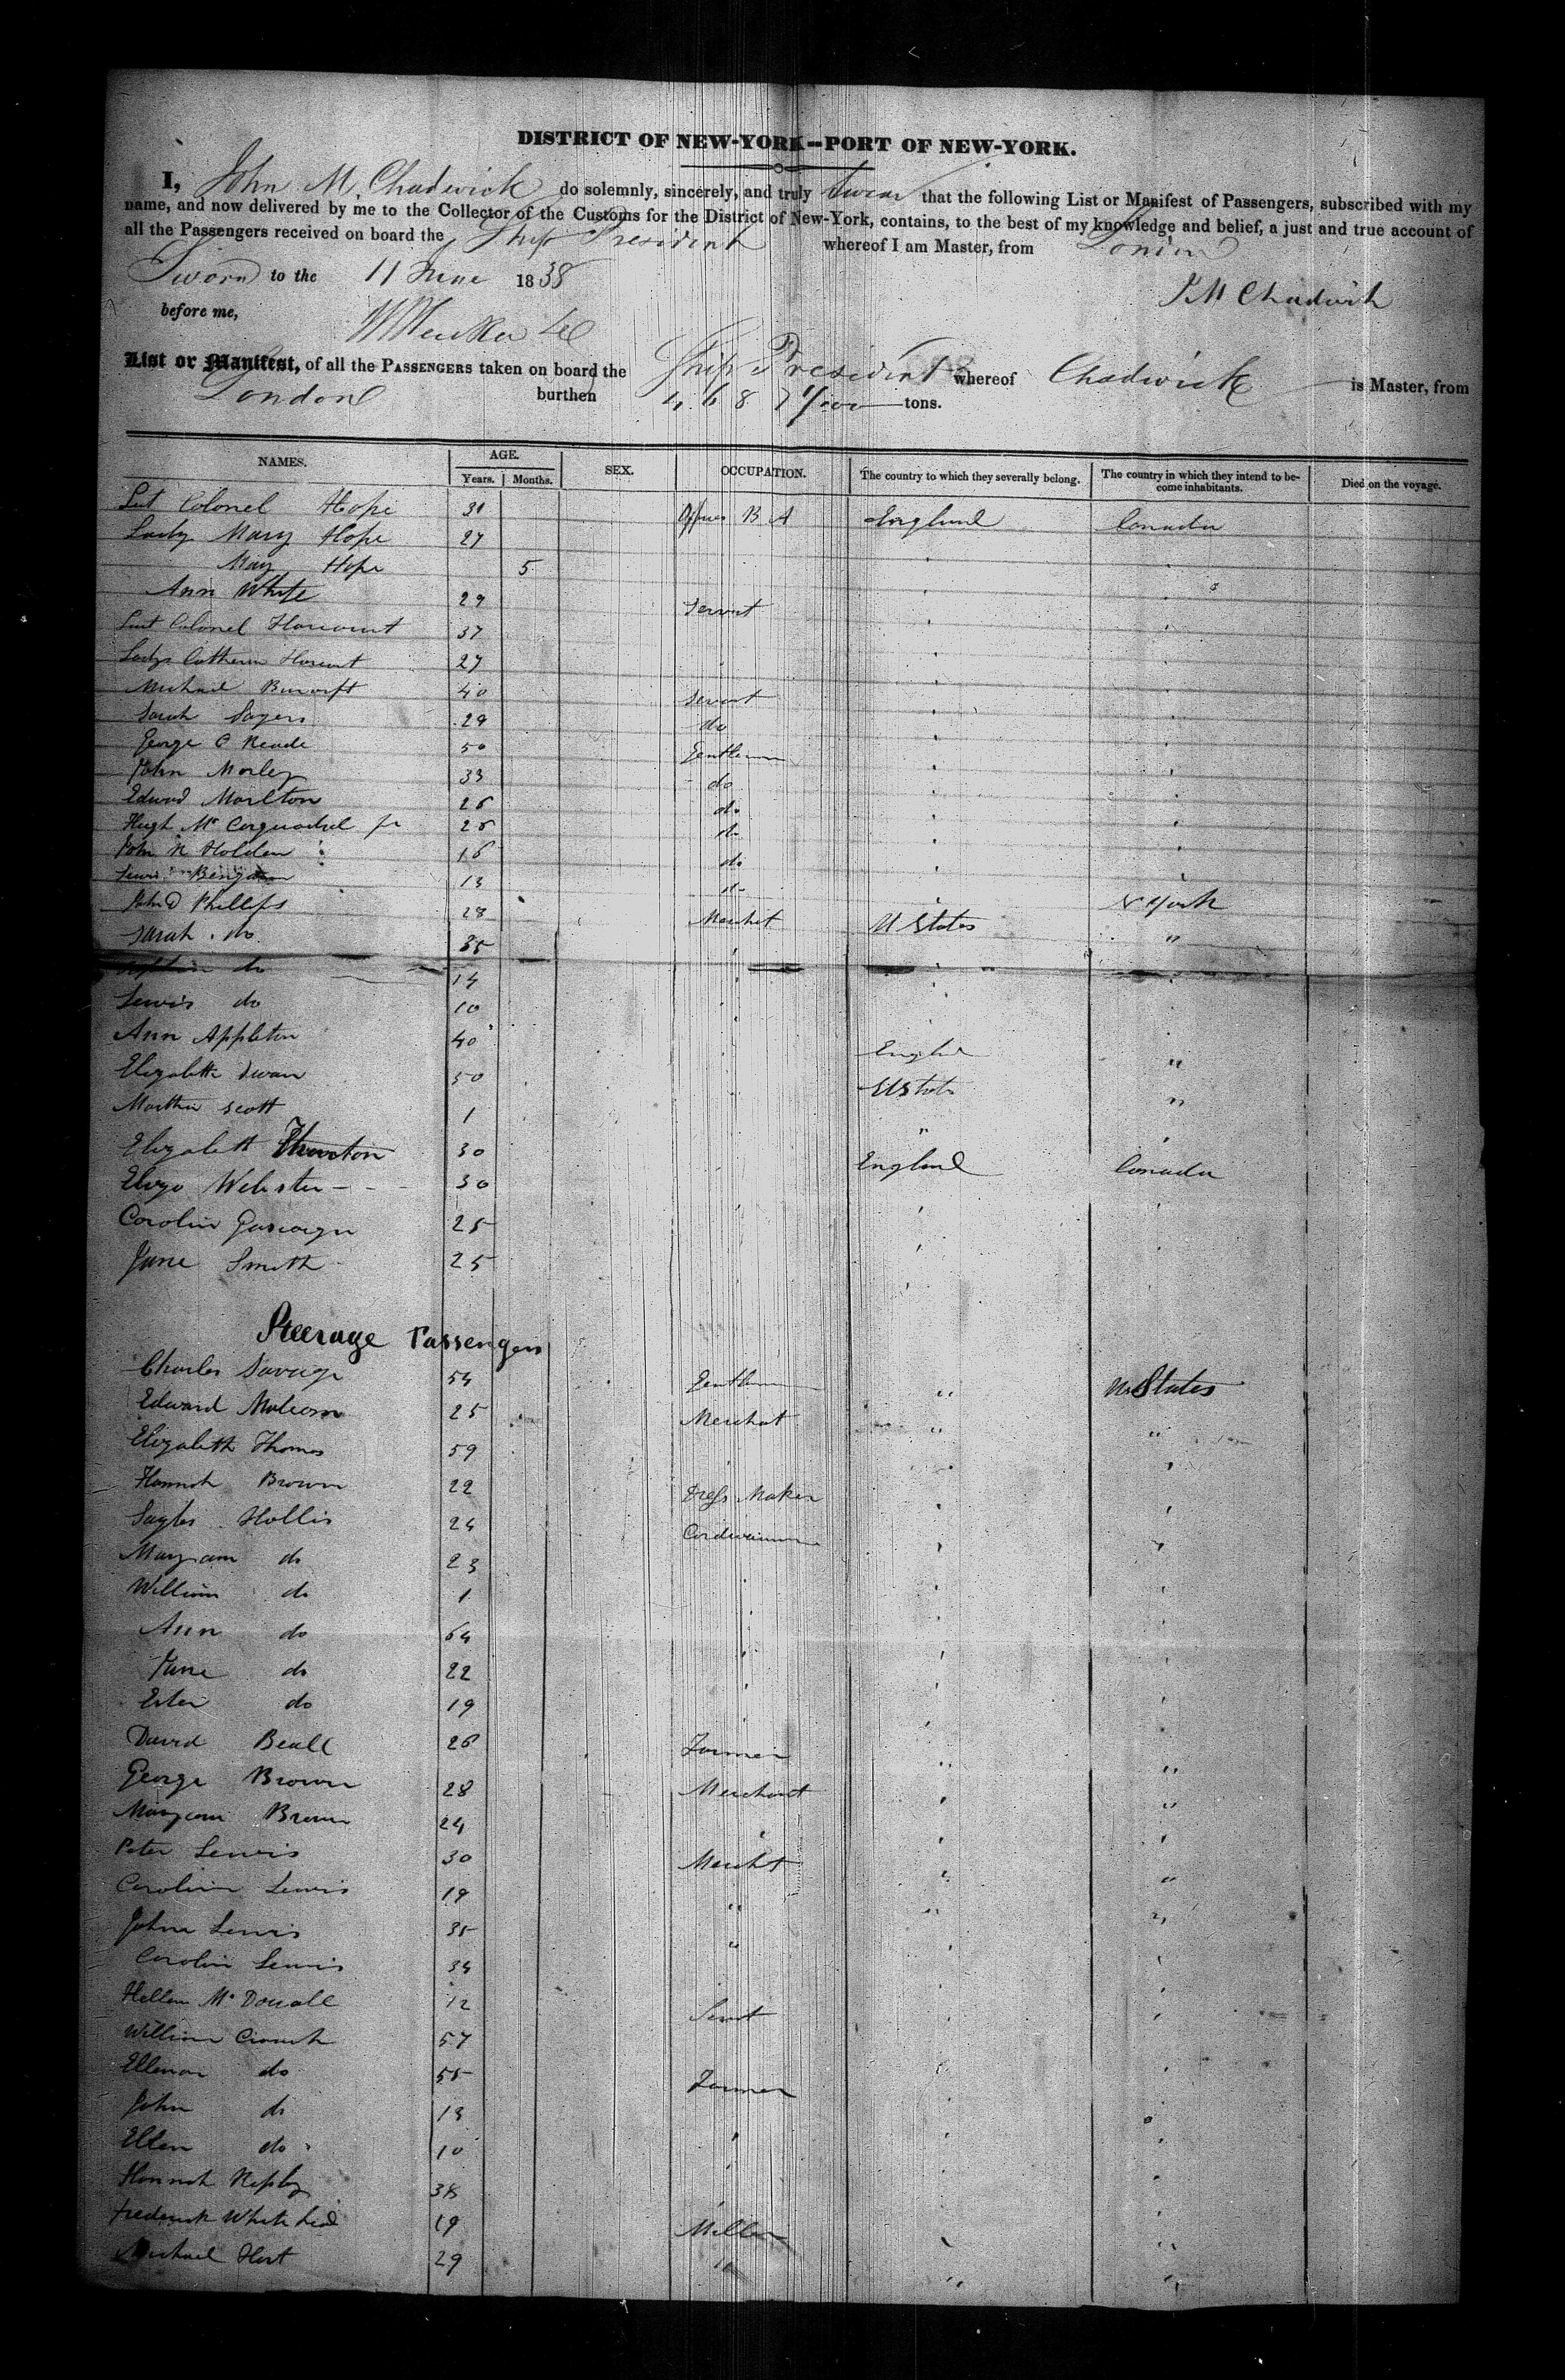 DISTRICT OF NEW-YORK--PORT OF NEW-YORK.
I, John M. Chadwick do solemnly, sincerely, and truly swear that the following List or Manifest of Passengers, subscribed with my
name, and now delivered by me to the Collector of the Customs for the District of New-York, contains, to the best of my knowledge and belief, a just and true account of
all the Passengers received on board the Ship President whereof I am Master, from London
Sworn to the 11 June 1838
J M Chadwick
before me,
List or Manifest, of all the PASSENGERS taken on board the Ship President whereof Chadwick is Master, from
London burthen 468 tons.
NAMES. AGE. SEX. OCCUPATION. The country to which they severally belong. The country in which they intend to become inhabitants. Died on the voyage.
Years. Months.
Lut Colonel Hope 31 B A England Canada
Lady Mary Hope 27
May Hope 5
Ann White 29 Servnt
Lut Colonel Harcourt 37
Lady Catherin Harcourt 27
Michael 40 servant
Sarah Sayers 29 do
George C Reade 50 Gentleman
John Morley 33 do
Edward Marlton 26 do
Hugh Mc 26 do
John N Holden 16 do
Lewis 13 do
John D Phillips 28 Merchat U States N York
Sarah do 35 "
do 14
Lewis do 10
Ann Appleton 40 England "
Elizabeth Swan 50 U States "
Martha Scott 1 "
Elizabeth Thurston 30 England Canada
Eliza Webster 30
Carolin Gascoigne 25
Jane Smith 25
Steerage Passengers
Charles Savage 54 Gentleman " U States
Edward Malcom 25 Merchat " "
Elizabeth Thomas 59
Hannah Brown 22 Dress Maker
Hollis 24 Cordwainer
Maryann do 23
William do 1
Ann do 64
Jane do 22
Ester do 19
David Beall 26 Farmer " "
George Brown 28 Merchant "
Maryann Brown 24
Peter Lewis 30 Mercht "
Carolin Lewis 19 " " "
John Lewis 35 "
Carolin Lewis 34
Hellen McDonall 12 Sernt
William Crouch 57
Ellenor do 55 Farmer
John do 13
Ellen do 10
Hannah 38
Frederick White head 19 Miller "
Michael Hart 29 " " "